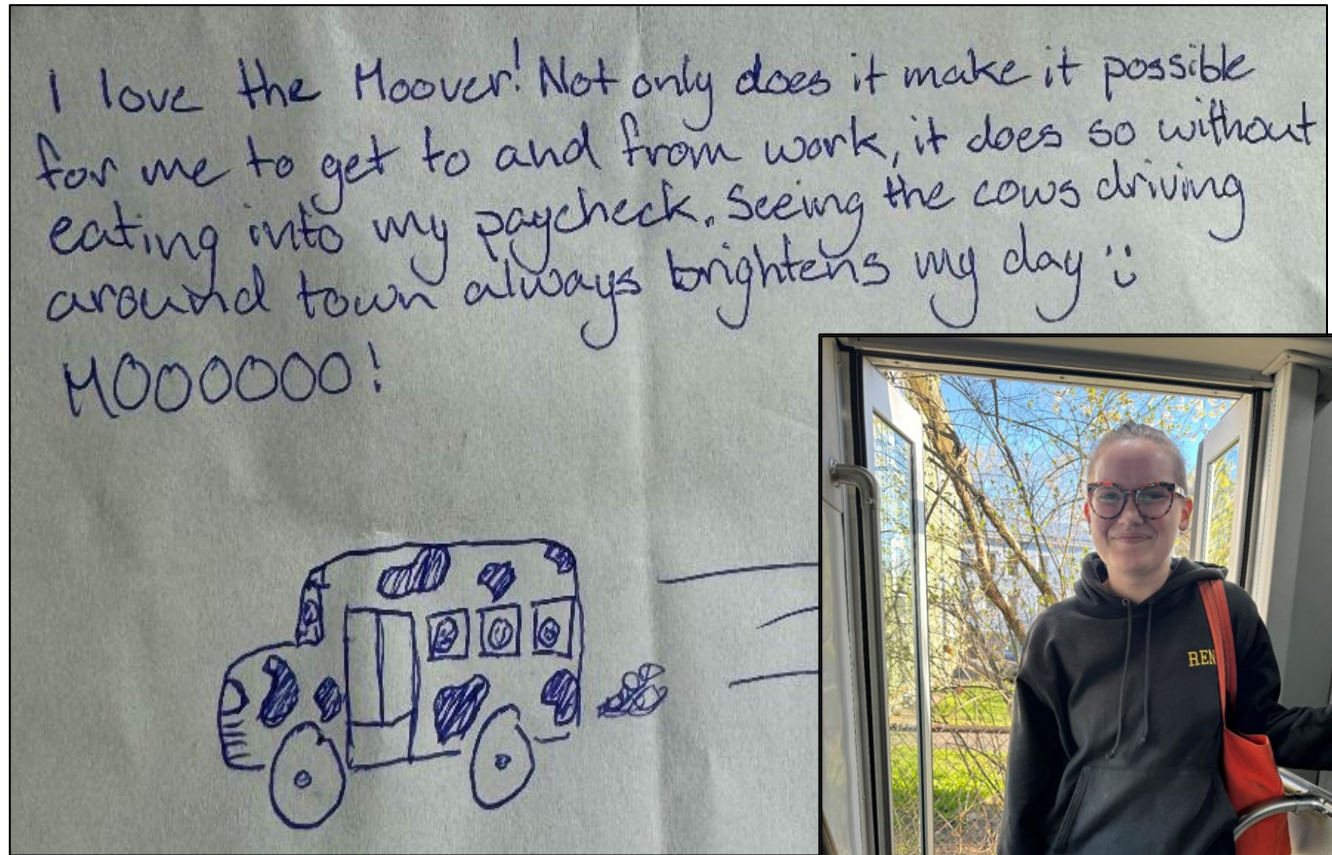 I love the Moover! Not only does it make it possible
for me to get to and from work, it does so without
eating into my paycheck. Seeing the cows driving
around town always brightens my day :)
MOOOOOO!
REN